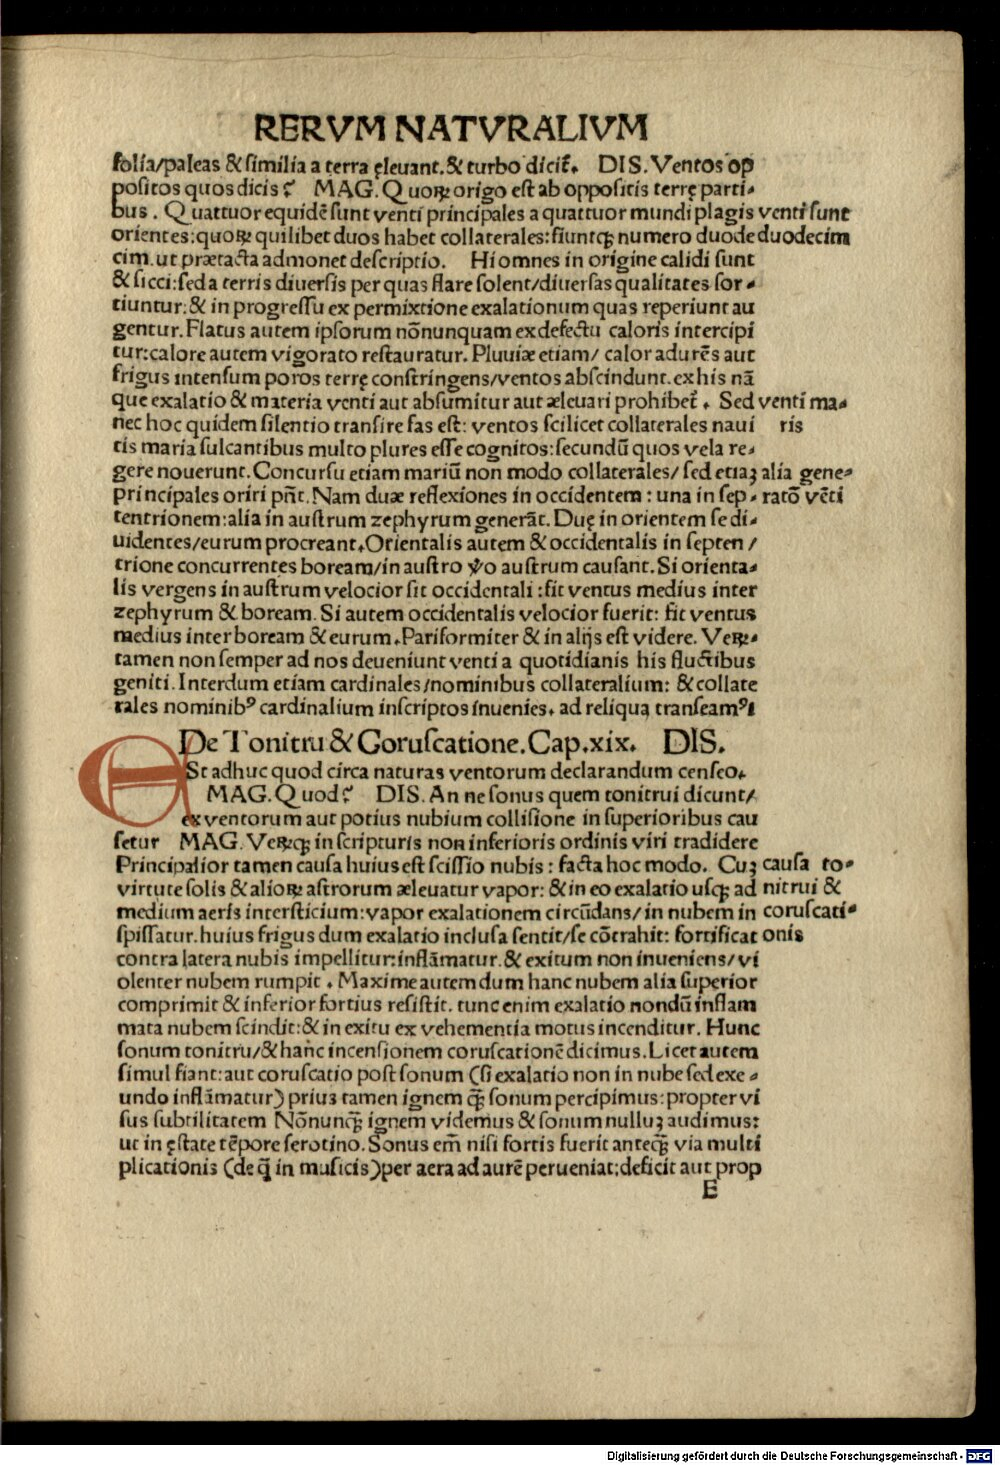 RERVM NATVRALIVM
folia/paleas & similia a terra ęleuant.& turbo dicit̃. DIS. Ventos op
positos quos dicis? MAG. Quoꝝ origo est ab oppositis terrę parti⸗
bus. Quattuor equidē sunt venti principales a quattuor mundi plagis
orientes:quoꝝ quilibet duos habet collaterales:fiuntqꝫ numero duode
cim.ut prætacta admonet descriptio. Hi omnes in origine calidi sunt
venti sunt
duodecim
& sicci:sed a terris diuersis per quas flare solent/diuersas qualitates sor⸗
tiuntur:& in progressu ex permixtione exalationum quas reperiunt au
gentur.Flatus autem ipsorum nōnunquam ex defectu caloris intercipi
tur:calore autem vigorato restauratur. Pluuiæ etiam/ calor adurēs aut
frigus intensum poros terrę constringens/ventos abscindunt.ex his nā
que exalatio & materia venti aut absumitur aut æleuari prohibet̃. Sed
nec hoc quidem silentio transire fas est: ventos scilicet collaterales naui
venti ma⸗
ris
tis maria sulcantibus multo plures esse cognitos:secundū quos vela re⸗
gere nouerunt.Concursu etiam mariū non modo collaterales/ sed etiaꝫ
principales oriri pñt.Nam duæ reflexiones in occidentem: una in sep⸗
alia gene⸗
ratō vēti
tentrionem:alia in austrum zephyrum generāt. Duę in orientem se di⸗
uidentes/eurum procreant.Orientalis autem & occidentalis in septen/
trione concurrentes boream/in austro ꝟo austrum causant.Si orienta⸗
lis vergens in austrum velocior sit occidentali:fit ventus medius inter
zephyrum & boream.Si autem occidentalis velocior fuerit: fit ventus
medius inter boream & eurum.Pariformiter & in alijs est videre. Veꝝ⸗
tamen non semper ad nos deueniunt venti a quotidianis his fluctibus
geniti.Interdum etiam cardinales/nominibus collateralium: & collate
rales nominibꝰ cardinalium inscriptos inuenies. ad reliqua transeamꝰ
De Tonitru & Coruscatione.Cap.xix. DIS.
ESt adhuc quod circa naturas ventorum declarandum censeo.
MAG.Quod? DIS.An ne sonus quem tonitrui dicunt/
ex ventorum aut potius nubium collisione in superioribus cau
setur MAG.Veꝝqꝫ in scripturis non inferioris ordinis viri tradidere
Principalior tamen causa huius est scissio nubis: facta hoc modo. Cuꝫ
virtute solis & alioꝝ astrorum æleuatur vapor: & in eo exalatio usqꝫ ad
medium aeris intersticium:vapor exalationem circūdans/in nubem in
spissatur.huius frigus dum exalatio inclusa sentit/se cōtrahit: fortificat
causa to⸗
nitrui &
coruscati⸗
onis
contra latera nubis impellitur:inflāmatur.& exitum non inueniens/vi
olenter nubem rumpit. Maxime autem dum hanc nubem alia superior
comprimit & inferior fortius resistit. tunc enim exalatio nondū inflam
mata nubem scindit:& in exitu ex vehementia motus incenditur. Hunc
sonum tonitru/& hanc incensionem coruscationē dicimus.Licet autem
simul fiant:aut coruscatio post sonum (si exalatio non in nube sed exe⸗
undo inflāmatur)prius tamen ignem qꝫ̃ sonum percipimus:propter vi
sus subtilitatem Nōnunqꝫ̃ ignem videmus & sonum nulluꝫ audimus:
ut in ęstate tēpore serotino.Sonus em̄ nisi fortis fuerit anteqꝫ̃ via multi
plicationis (de q̄ in musicis)per aera ad aurē perueniat:deficit aut prop
E
Digitalisierung gefördert durch die Deutsche Forschungsgemeinschaft - DFG